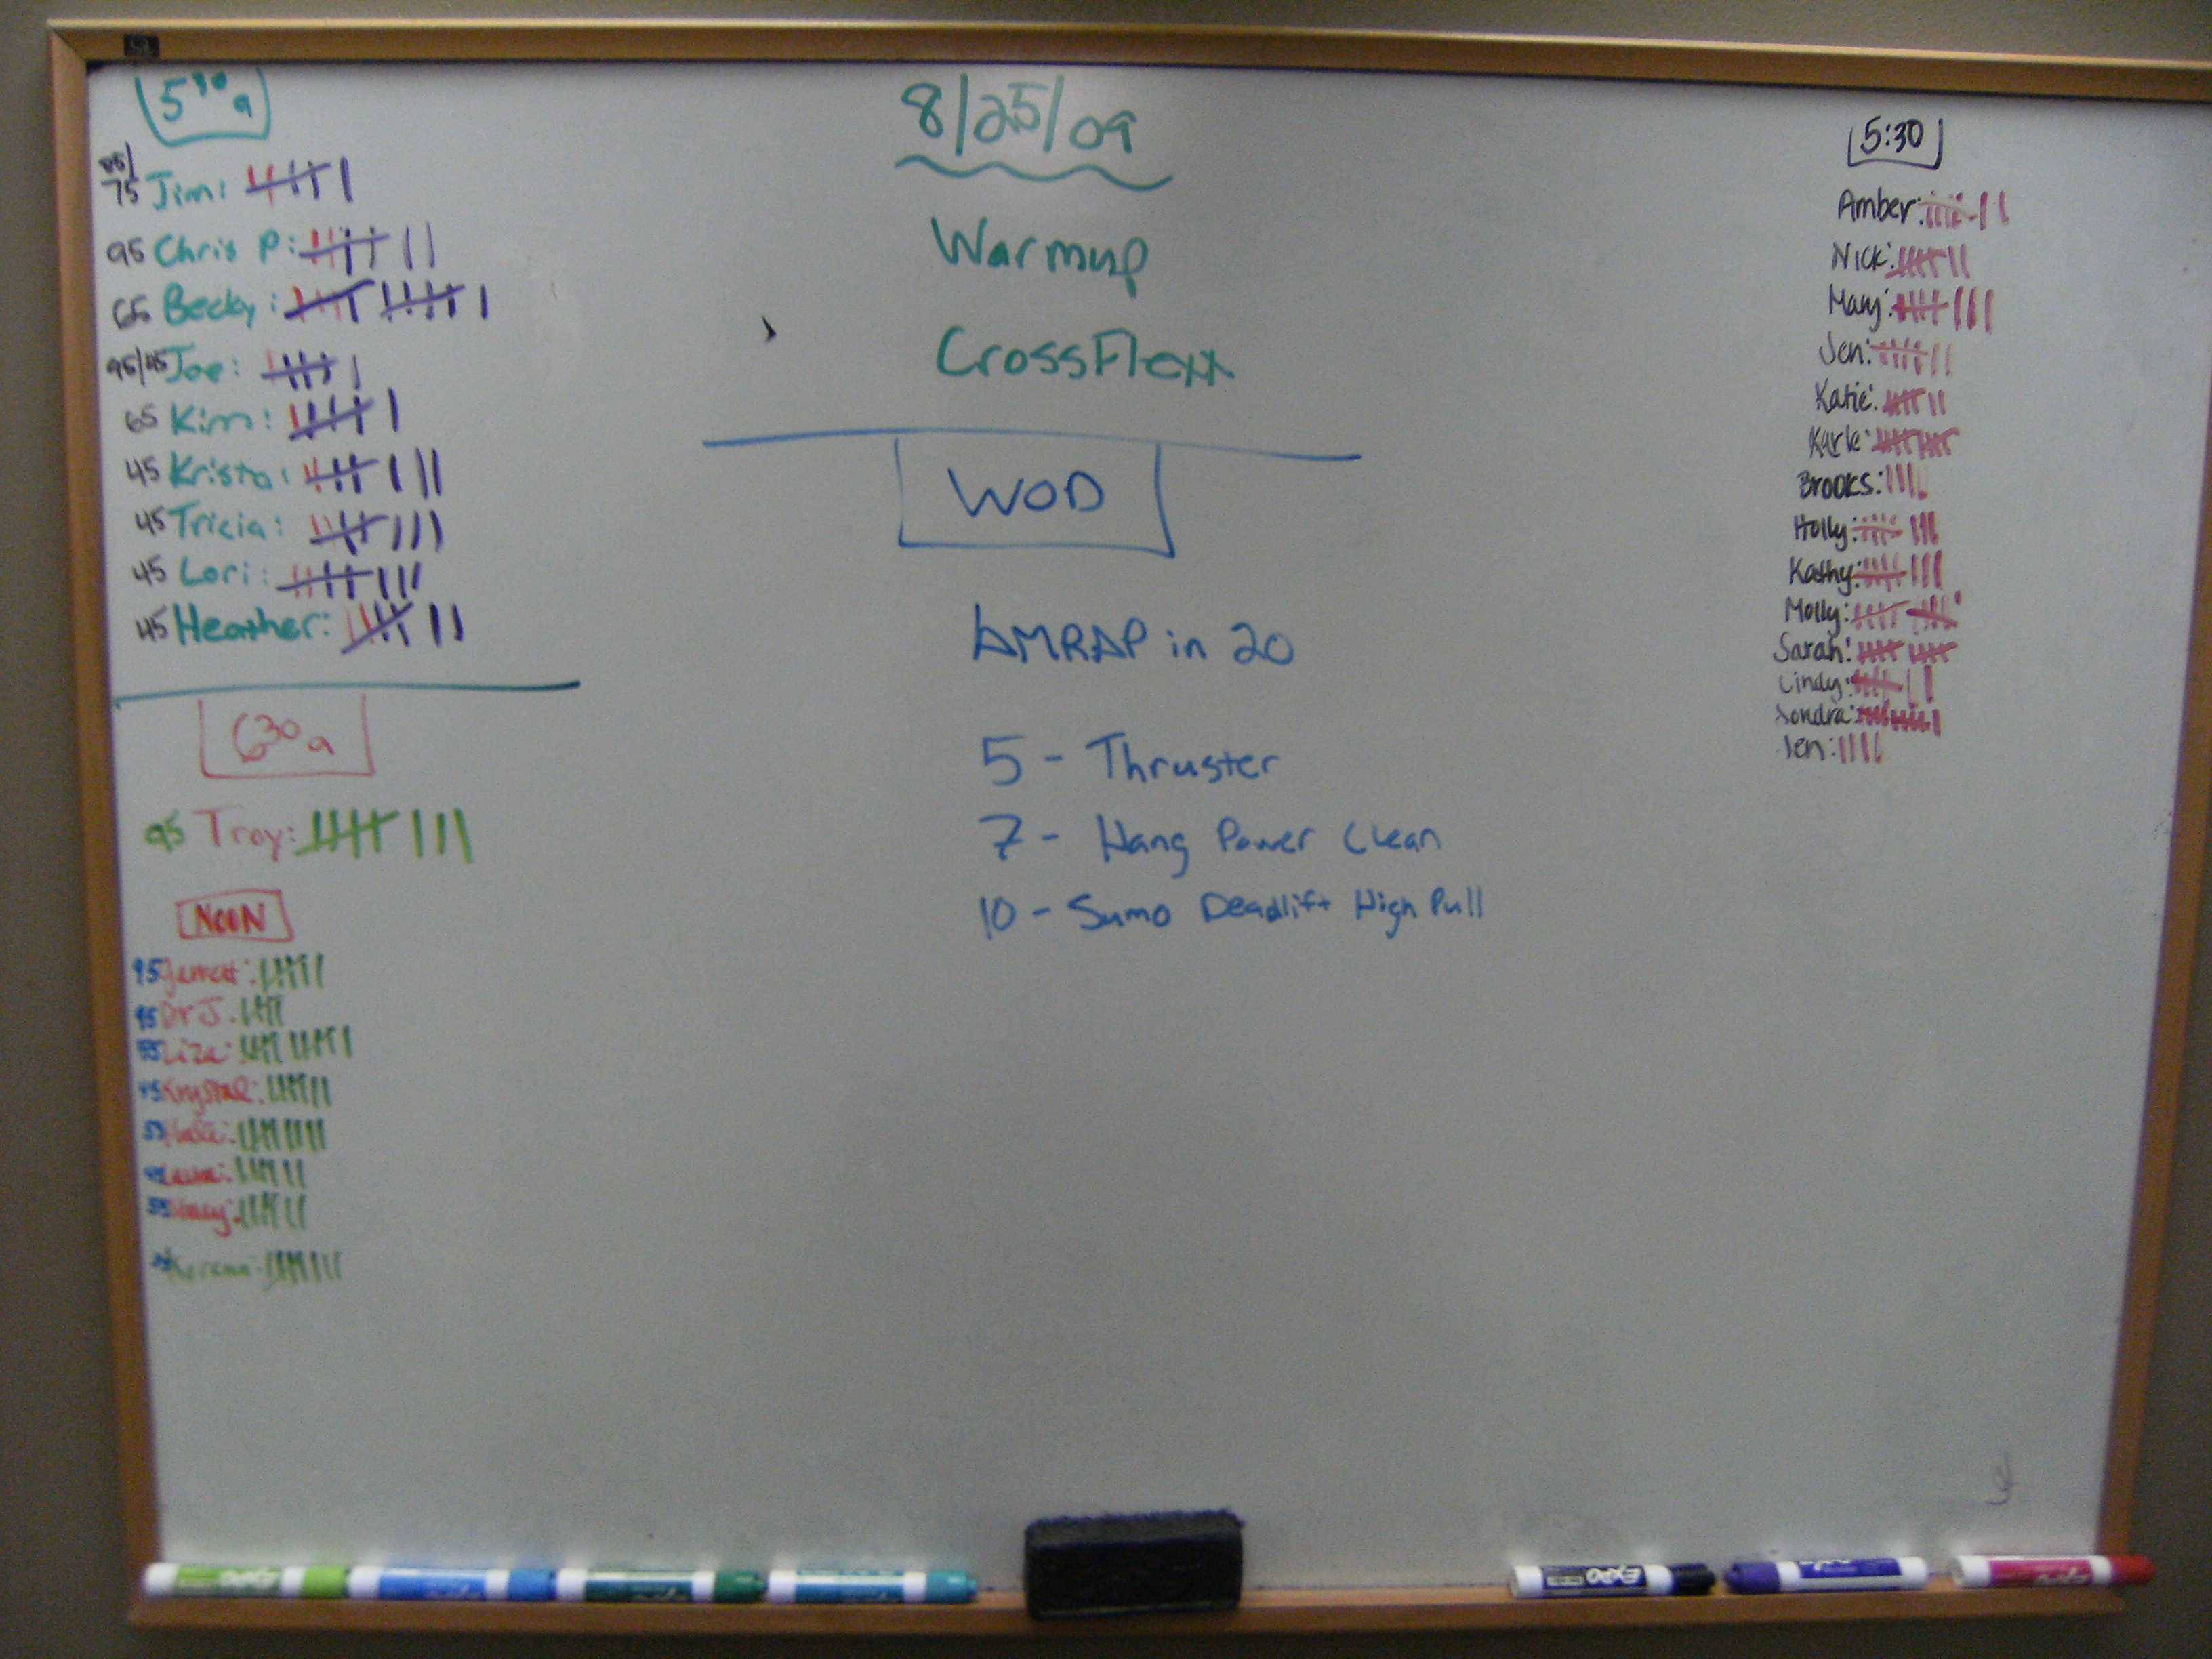 5³⁰a
85/
75 Jim:
95 Chris P:
65 Becky:
95/45 Joe:
65 Kim:
45 Krista:
45 Tricia:
45 Lori:
45 Heather:
6³⁰a
95 Troy:
NOON
95 Jarrett:
95 Dr J.
55 Liza:
45 Krystal:
8/25/09
Warmup
CrossFlexx
WOD
AMRAP in 20
5 - Thruster
7 - Hang Power Clean
10 - Sumo Deadlift High Pull
5:30
Amber:
Nick:
Mary:
Jen:
Katie:
Brooks:
Holly:
Kathy:
Molly:
Sarah:
Cindy:
Sondra:
Jen:
EXPO